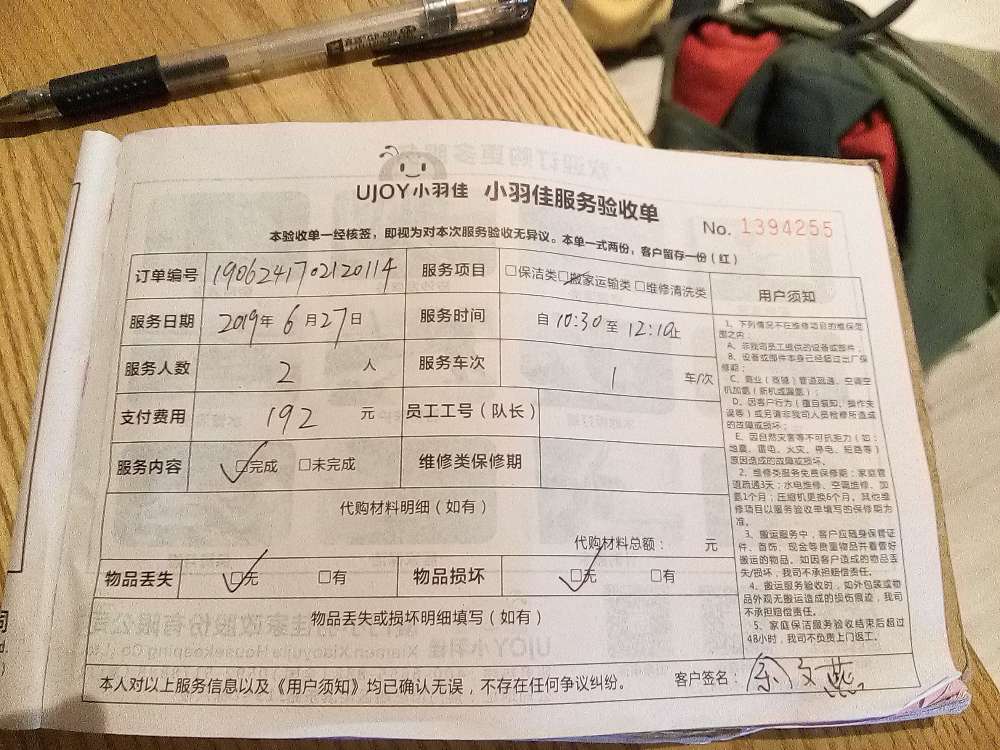 UJOY小羽佳 小羽佳服务验收单
No. 1394255
本验收单一经核签，即视为对本次服务验收无异议。本单一式两份，客户留存一份（红）
订单编号 1906241702120114 服务项目 □保洁类 □搬家运输类 □维修清洗类
服务日期 2019年 6月27日 服务时间 自 10:30 至 12:10止
服务人数 2 人 服务车次 1 车/次
支付费用 192 元 员工工号（队长）
服务内容 □完成 □未完成 维修类保修期
代购材料明细（如有）
代购材料总额： 元
物品丢失 □无 □有 物品损坏 □无 □有
物品丢失或损坏明细填写（如有）
本人对以上服务信息以及《用户须知》均已确认无误，不存在任何争议纠纷。
客户签名：余文燕
用户须知
1、下列情况不在维修项目的维保范
围之内：
A、非我司员工提供的设备或部件；
B、设备或部件本身已经超过出厂保
修期；
C、商业（商铺）管道疏通、空调空
机加氨（新机或漏氨）；
D、因客户行为（擅自添加、操作失
误等）或另请非我司人员检修所造成
的故障或损坏；
E、因自然灾害等不可抗拒力（如：
地震、雷电、火灾、停电、短路等）
原因造成的故障或损坏。
2、维修类服务免费保修期：家庭管
道疏通3天；水电维修、空调维修、加
氨1个月；压缩机更换6个月。其他维
修项目以服务验收单填写的保修期为
准。
3、搬运服务中，客户应随身保管证
件、首饰、现金等贵重物品并看管好
搬运的物品。如因客户造成的物品丢
失/损坏，我司不承担赔偿责任。
4、搬运服务验收时，如外包装或物
品外观无搬运造成的损伤痕迹，我司
不承担赔偿责任。
5、家庭保洁服务验收结束后超过
48小时，我司不负责上门返工。